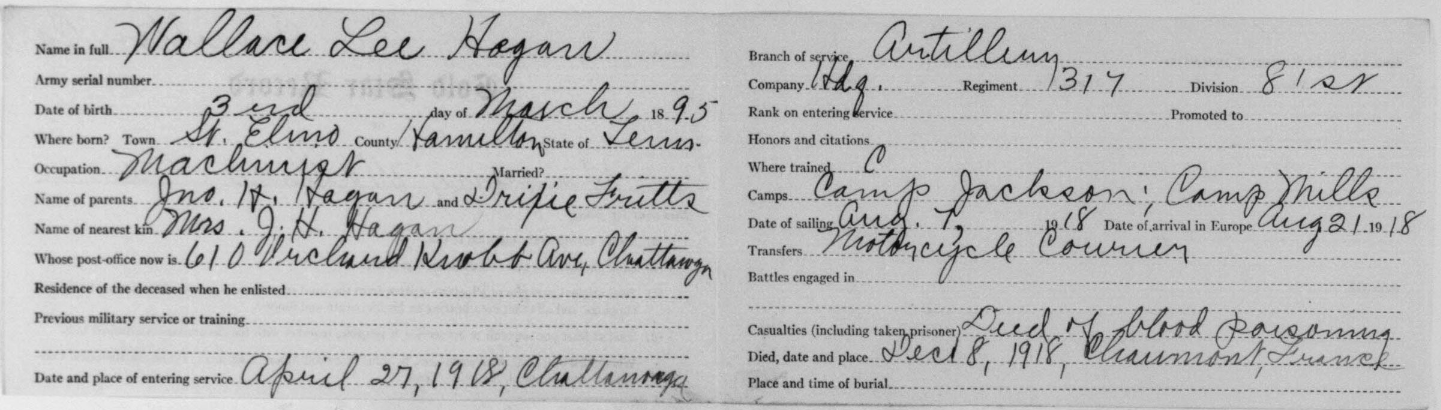 Name in full Wallace Lee Hagan
Army serial number
Date of birth 3rd day of March 1895
Where born? Town St. Elmo County Hamilton State of Tenn.
Occupation Machinist Married?
Name of parents Jno. H. Hagan and Drixie Fritts
Name of nearest kin Mrs. J. H. Hagan
Whose post-office now is 610 Orchard Knobb Ave, Chattanooga
Residence of the deceased when he enlisted
Previous military service or training
Date and place of entering service April 27, 1918, Chattanooga
Branch of service Artillery
Company Hdq. Regiment 317 Division 81st
Rank on entering service Promoted to
Honors and citations
Where trained C
Camps Camp Jackson; Camp Mills
Date of sailing Aug. 7, 1918 Date of arrival in Europe Aug 21 1918
Transfers Motorcycle Courier
Battles engaged in
Casualties (including taken prisoner) Died of blood poisoning
Died, date and place Dec 18, 1918, Chaumont, France
Place and time of burial